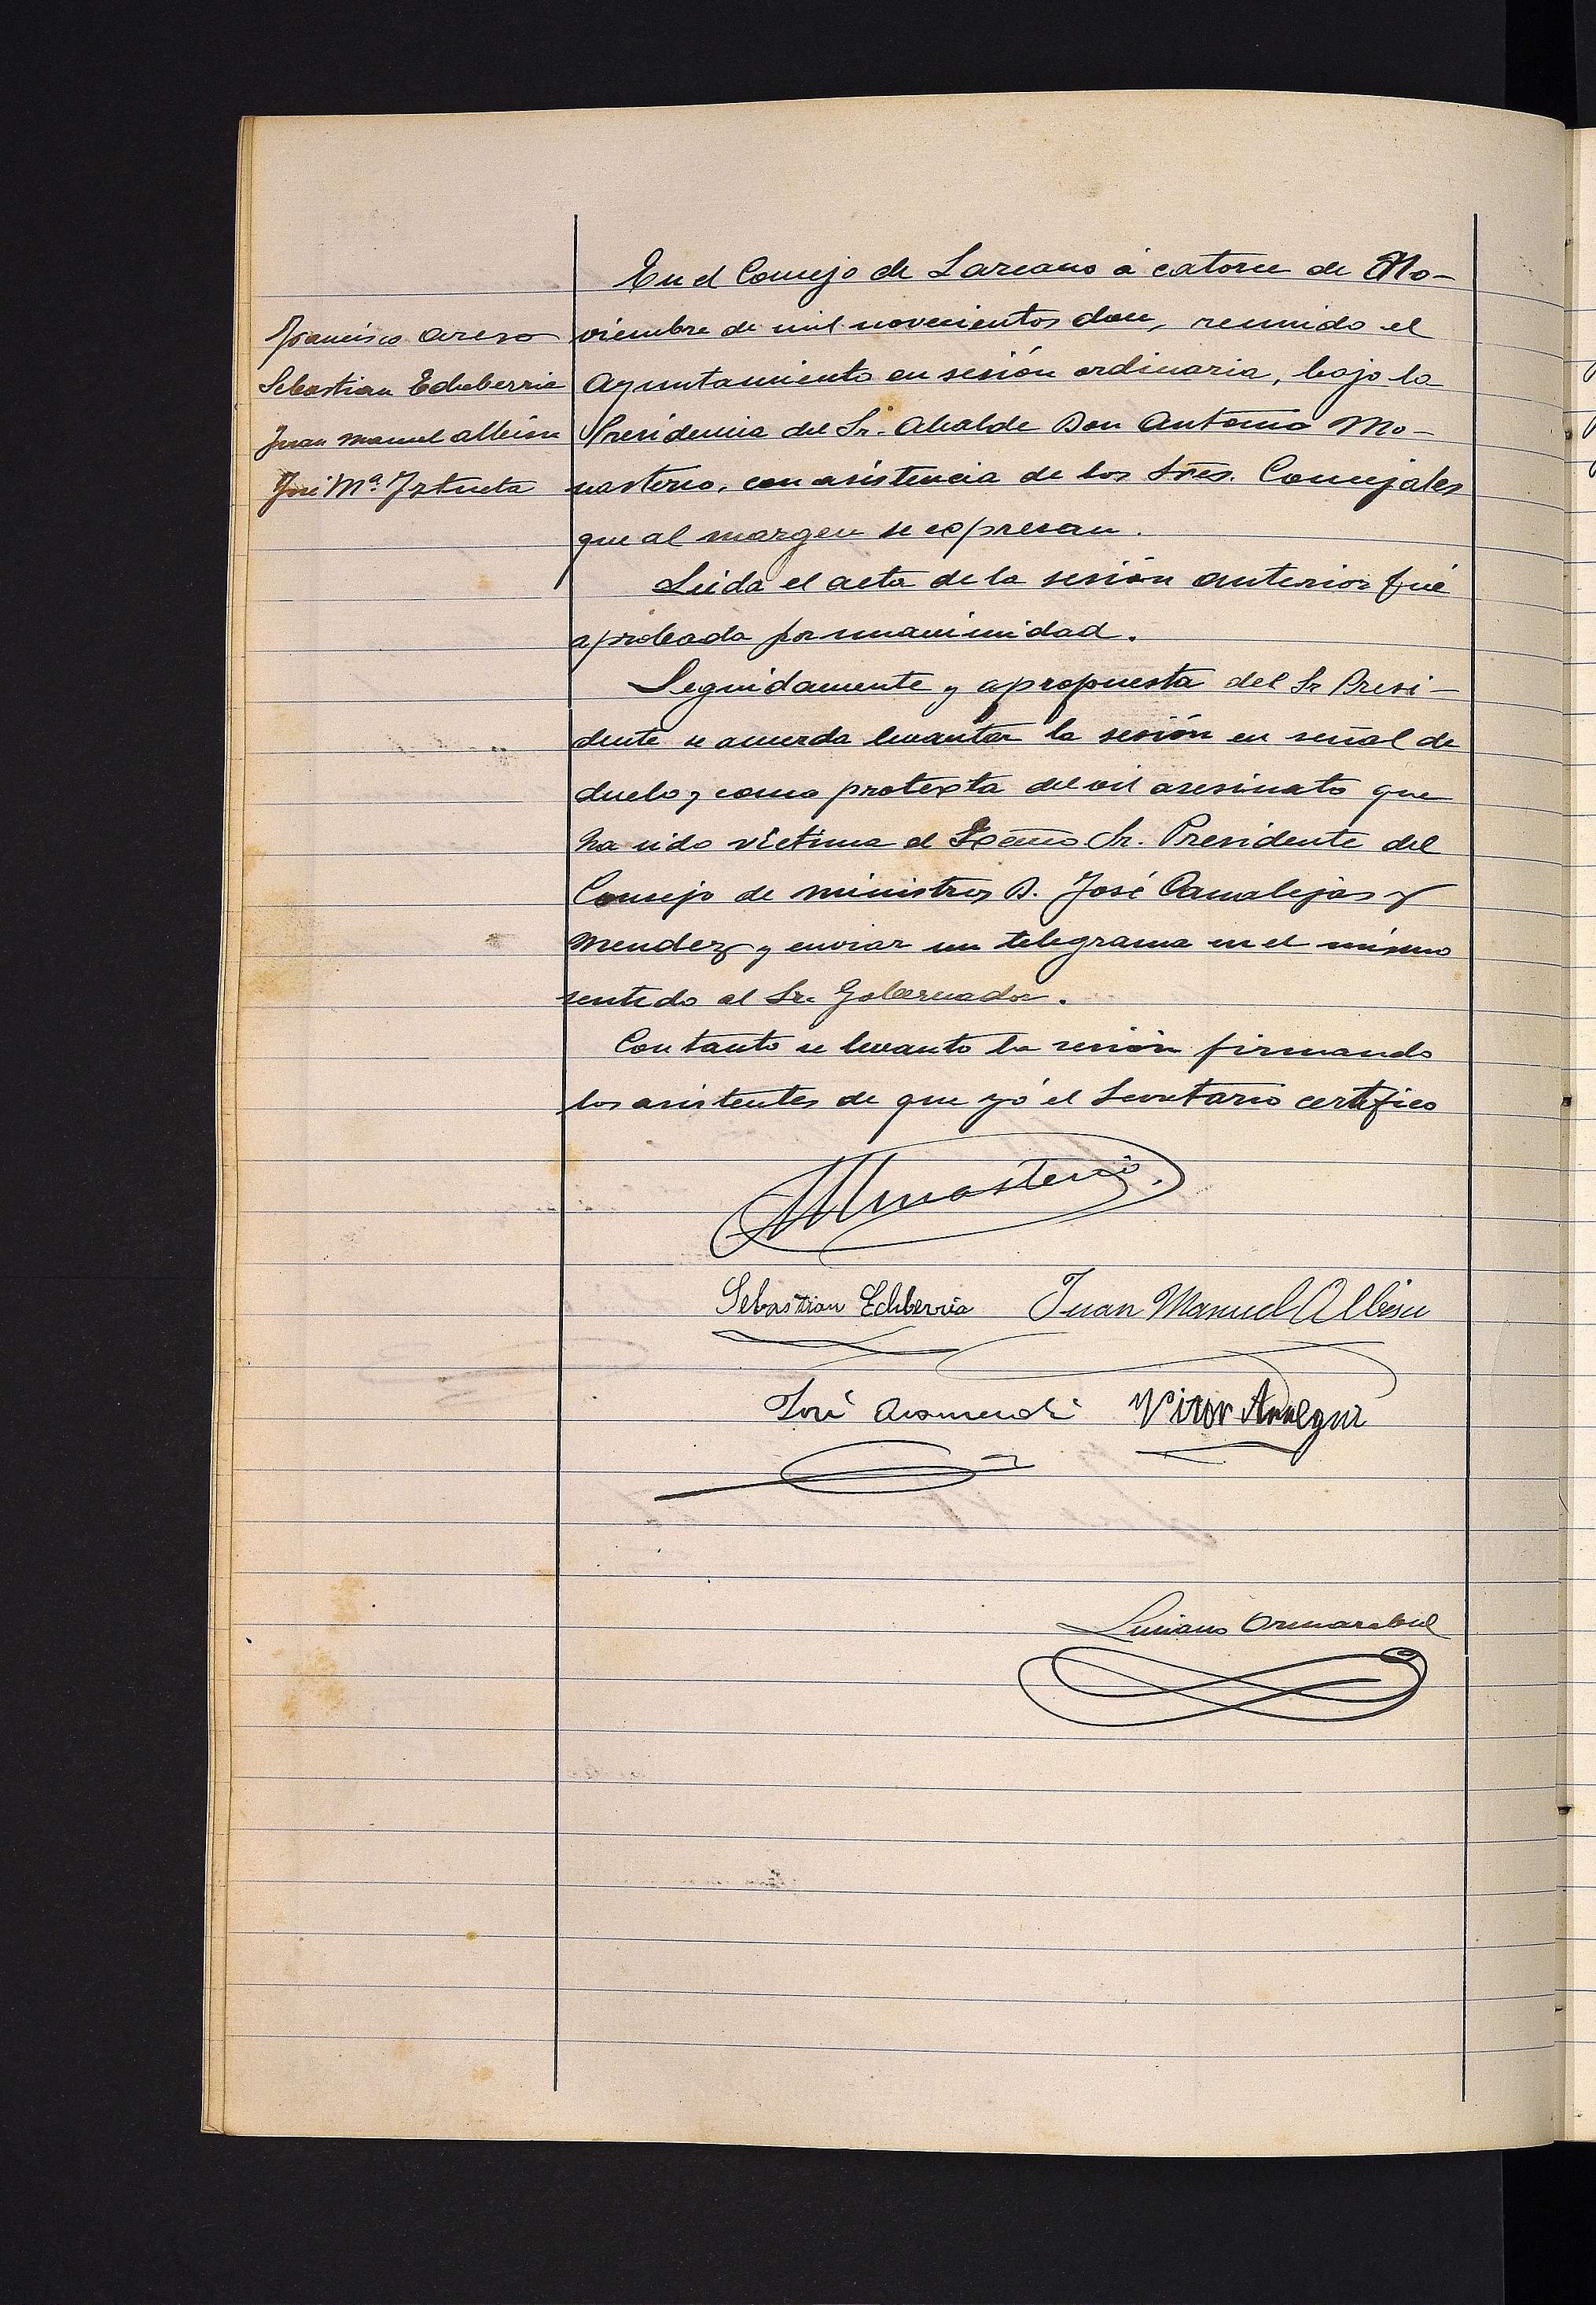 Francisco Areso
Sebastian Echeberria
Juan Manuel Albisu
José Mª. Iztueta
En el Concejo de Lazcano á catorce de No-
viembre de mil novecientos doce, reunido el
Ayuntamiento en sesión ordinaria, bajo la
Presidencia del Sr. Alcalde Don Antonio Mo-
nasterio, con asistencia de los Sres. Concejales
que al margen se expresan.
Leida el acta de la sesión anterior fué
aprobada por unanimidad.
Seguidamente y a propuesta del Sr Presi-
dente se acuerda levantar la sesión en señal de
duelo y como protexta del vil asesinato que
ha sido victima el Excmo Sr. Presidente del
Consejo de ministros D. José Canalejas y
Mendez y enviar un telegrama en el mismo
sentido al Sr. Gobernador.
Con tanto se levanto la sesión firmando
los asistentes de que yó el Secretario certifico
Monasterio.
Sebastian Echeberria Juan Manuel Albisu
José Aramendi Vitor
Luciano Ormazabal